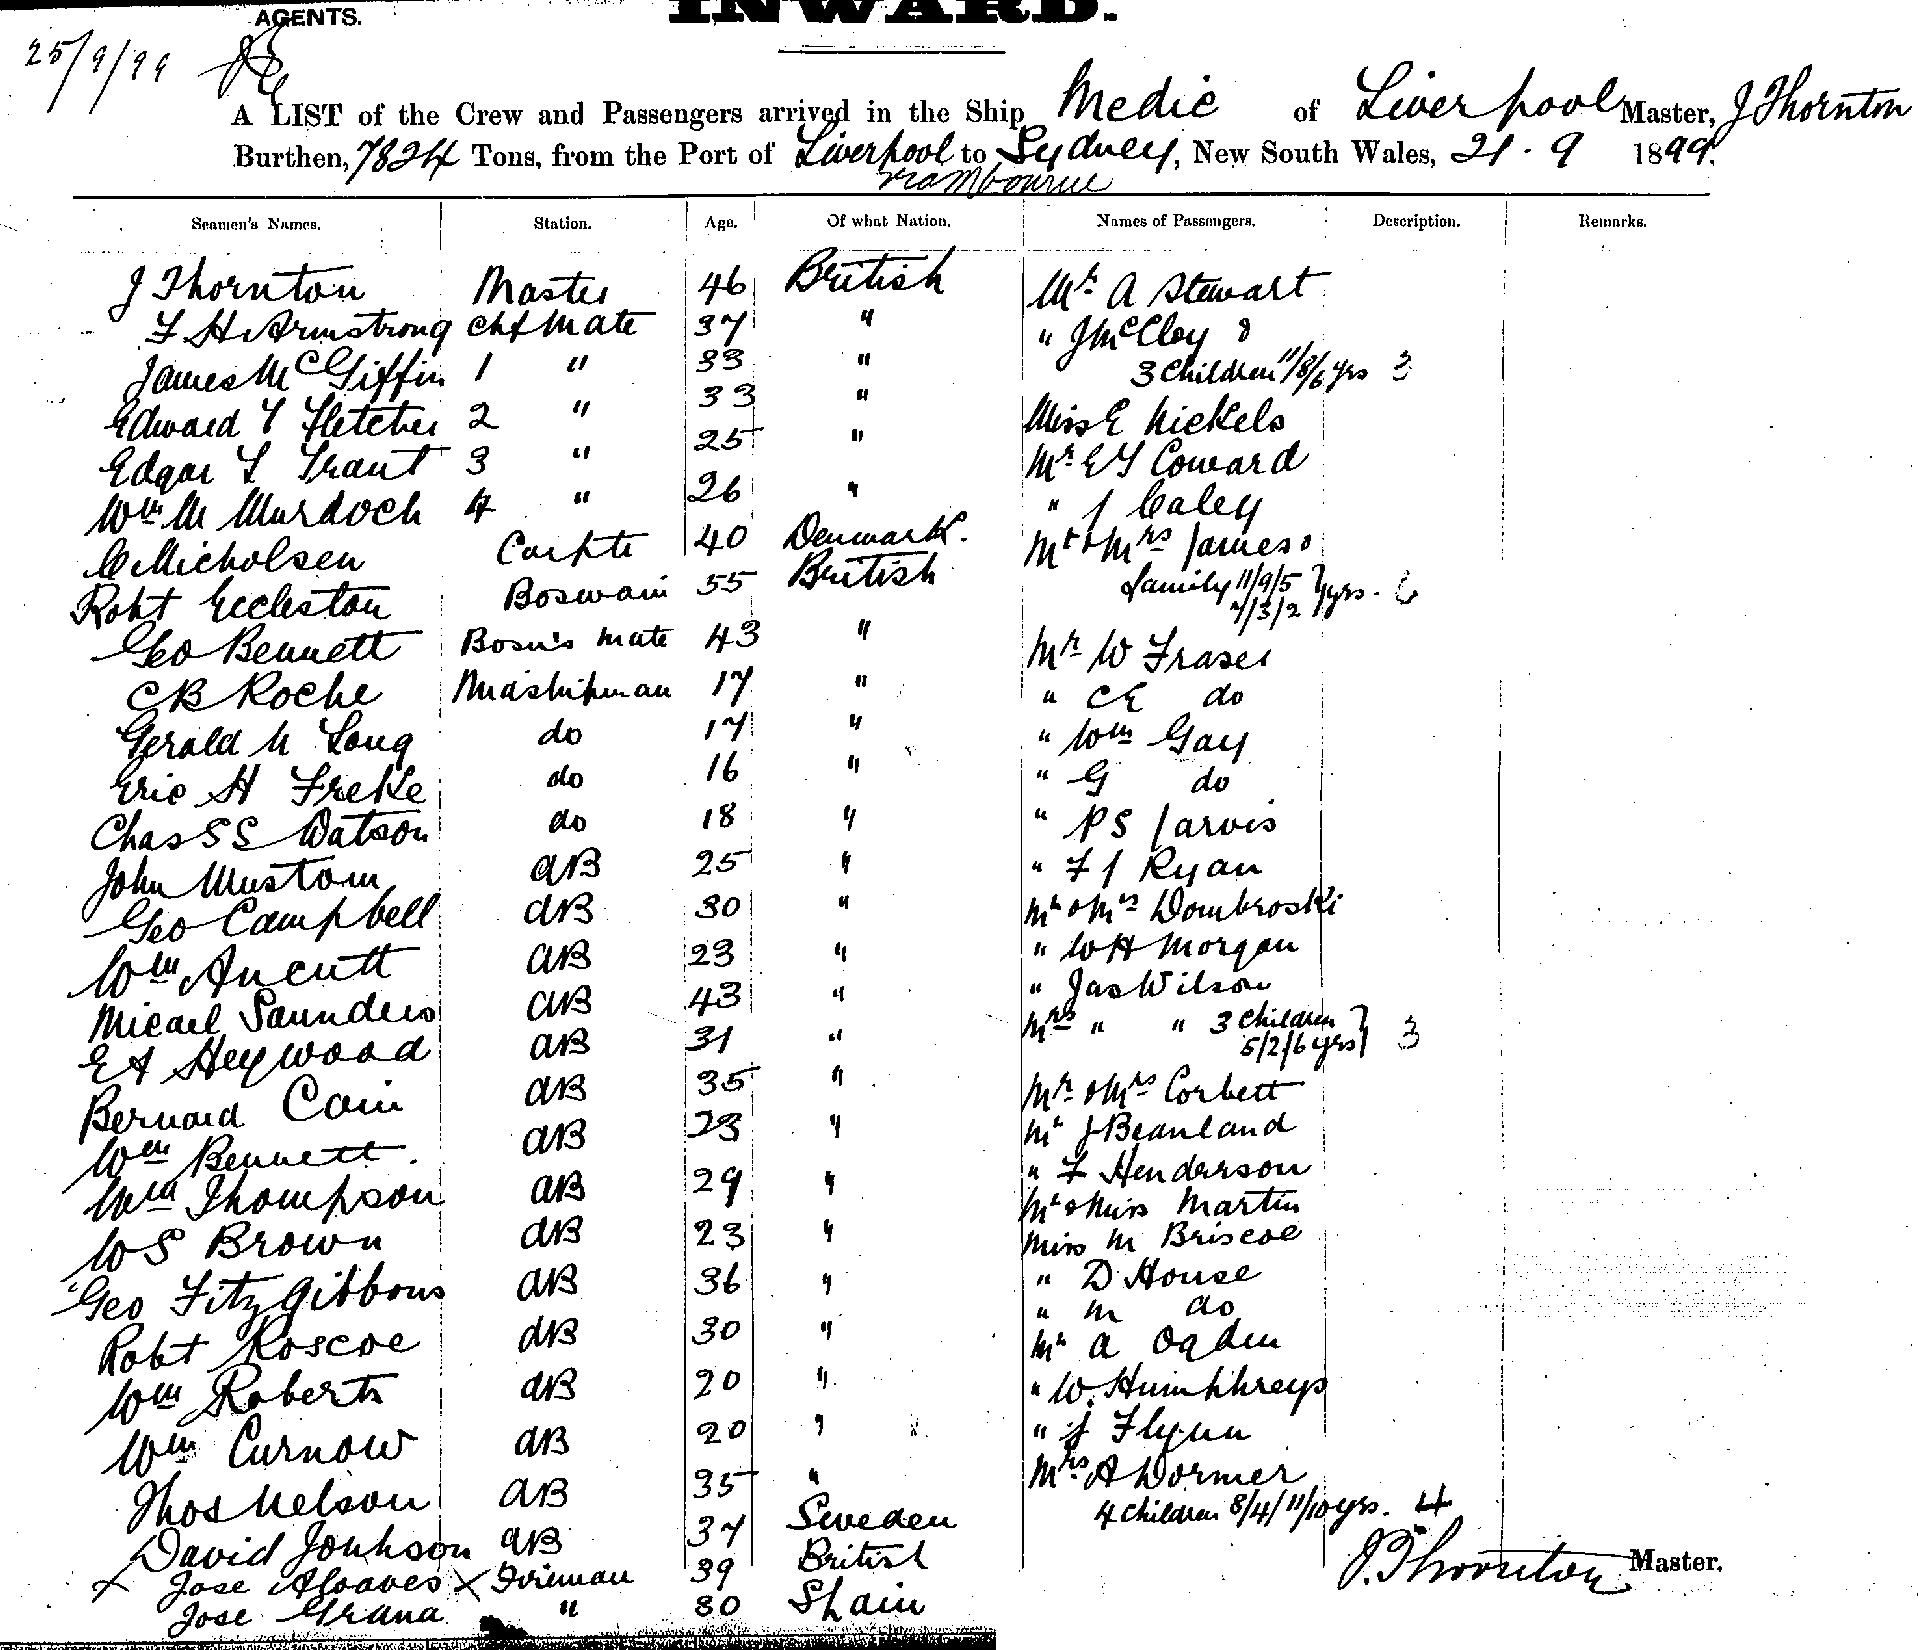 INWARD.
AGENTS.
25/9/99
A LIST of the Crew and Passengers arrived in the Ship Medic of Liverpool Master, J Thornton
Burthen, 7824 Tons, from the Port of Liverpool to Sydney, New South Wales, 21.9 1899.
via Mbourne
Seamen's Names. Station. Age. Of what Nation. Names of Passengers. Description. Remarks.
J Thornton Master 46 British Mr A Stewart
F H Armstrong Chf Mate 37 " " J McCloy &
James McGiffin 1 " 33 " 3 Children 11/8/6 yrs 3
Edward T Fletcher 2 " 33 " Miss E Nickels
Edgar L Trant 3 " 25 " Mr E T Coward
Wm M Murdoch 4 " 26 " " J Caley
C Nicholsen Carptr 40 Denmark. Mr & Mrs James &
Robt Eccleston Boswain 55 British family 11/9/5 yrs. 6
7/3/2
Geo Bennett Bosn's Mate 43 " Mr W Fraser
C B Roche Midshipman 17 " " C E do
Gerald N Long do 17 " " Wm Gay
Eric H Freke do 16 " " G do
Chas S S Watson do 18 " " P S Jarvis
John Mustom AB 25 " " F J Ryan
Geo Campbell AB 30 " Mr & Mrs Dombroski
Wm Ancutt AB 23 " " W H Morgan
Micael Saunders AB 43 " " Jas Wilson
E A Heywood AB 31 " Mrs " " 3 Children 3
5/2/6 yrs
Bernard Cain AB 35 " Mr & Mrs Corbett
Wm Bennett. AB 23 " Mr J Beanland
" F Henderson
Wm Thompson AB 29 " Mr & Miss Martin
W S Brown AB 23 " Miss M Briscoe
Geo Fitzgibbons AB 36 " " D House
" M do
Robt Roscoe AB 30 " Mr A Ogden
Wm Roberts AB 20 " " W. Humphreys
Wm Curnow AB 20 " " J Flynn
Thos Nelson AB 35 " Mrs A Dormer
4 Children 8/4/11/10 yrs. 4
David Jonhson AB 37 Sweden
x Jose x Fireman 39 British J. Thornton Master.
Jose Grana " 30 Spain